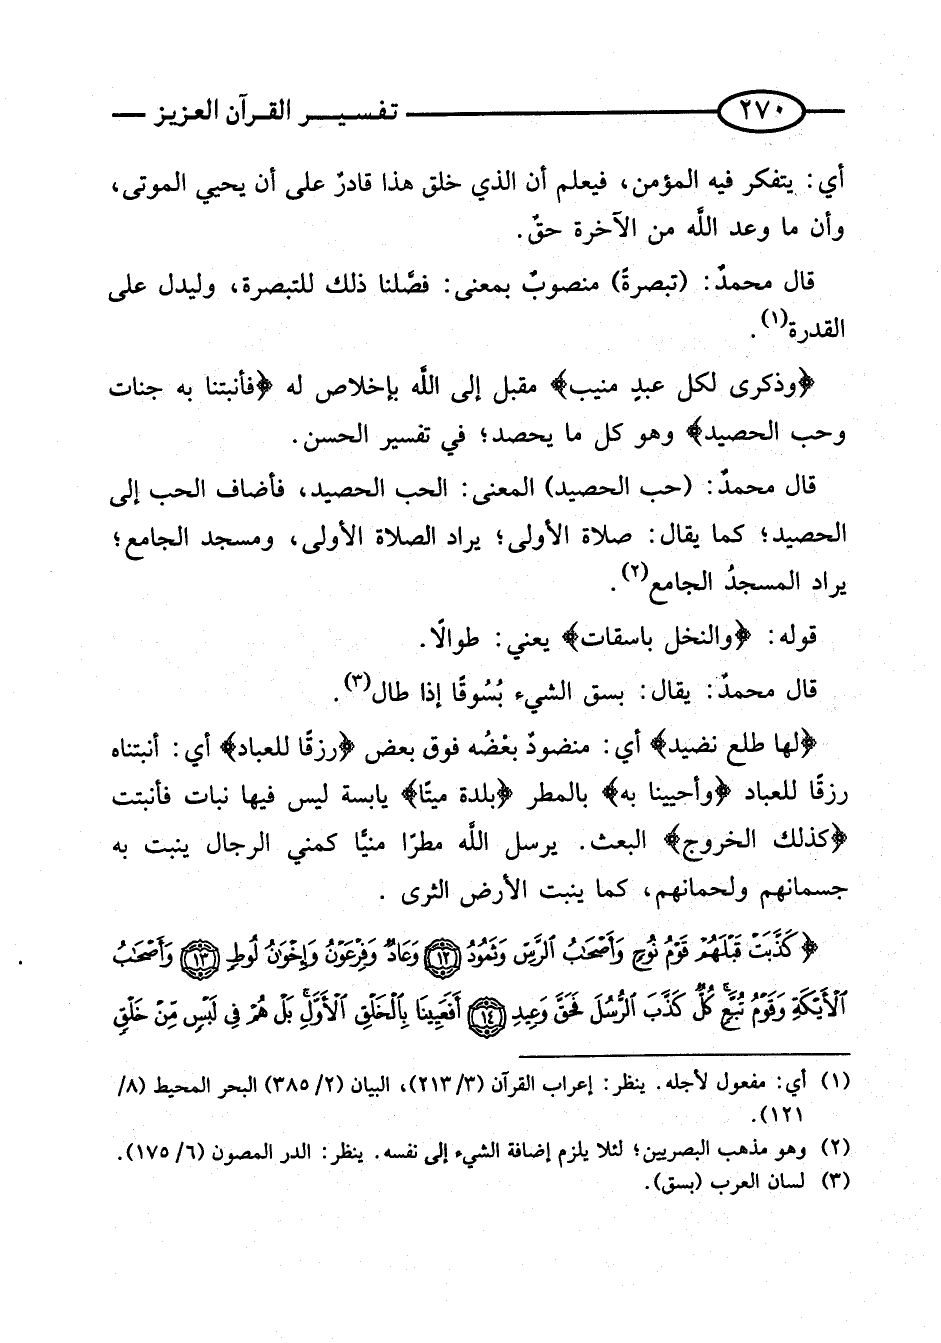 ٢٧٠ تفسير القرآن العزيز
أي: يتفكر فيه المؤمن، فيعلم أن الذي خلق هذا قادرٌ على أن يحيي الموتى،
وأن ما وعد اللَّه من الآخرة حقٌ.
قال محمدٌ: (تبصرةً) منصوبٌ بمعنى: فصَّلنا ذلك للتبصرة، وليدل على
القدرة(١).
﴿وذكرى لكل عبدٍ منيب﴾ مقبل إلى اللَّه بإخلاص له ﴿فأنبتنا به جنات
وحب الحصيد﴾ وهو كل ما يحصد؛ في تفسير الحسن.
قال محمدٌ: (حب الحصيد) المعنى: الحب الحصيد، فأضاف الحب إلى
الحصيد؛ كما يقال: صلاة الأولى؛ يراد الصلاة الأولى، ومسجد الجامع؛
يراد المسجدُ الجامع(٢).
قوله: ﴿والنخل باسقات﴾ يعني: طوالًا.
قال محمدٌ: يقال: بسق الشيء بُسُوقًا إذا طال(٣).
﴿لها طلع نضيد﴾ أي: منضودٌ بعْضُه فوق بعض ﴿رزقًا للعباد﴾ أي: أنبتناه
رزقًا للعباد ﴿وأحيينا به﴾ بالمطر ﴿بلدة ميتًا﴾ يابسة ليس فيها نبات فأنبتت
﴿كذلك الخروج﴾ البعث. يرسل اللَّه مطرًا منيًّا كمني الرجال ينبت به
جسمانهم ولحمانهم، كما ينبت الأرض الثرى .
﴿كَذَّبَتْ قَبْلَهُمْ قَوْمُ نُوحٍ وَأَصْحَٰبُ ٱلرَّسِّ وَثَمُودُ ١٢ وَعَادٌ وَفِرْعَوْنُ وَإِخْوَٰنُ لُوطٍ ١٣ وَأَصْحَٰبُ
ٱلْأَيْكَةِ وَقَوْمُ تُبَّعٍ ۚ كُلٌّ كَذَّبَ ٱلرُّسُلَ فَحَقَّ وَعِيدِ ١٤ أَفَعَيِينَا بِٱلْخَلْقِ ٱلْأَوَّلِ ۚ بَلْ هُمْ فِى لَبْسٍ مِّنْ خَلْقٍ
(١) أي: مفعول لأجله. ينظر: إعراب القرآن (٣/ ٢١٣)، البيان (٢/ ٣٨٥) البحر المحيط (٨/
١٢١).
(٢) وهو مذهب البصريين؛ لئلا يلزم إضافة الشيء إلى نفسه. ينظر: الدر المصون (٦/ ١٧٥).
(٣) لسان العرب (بسق).